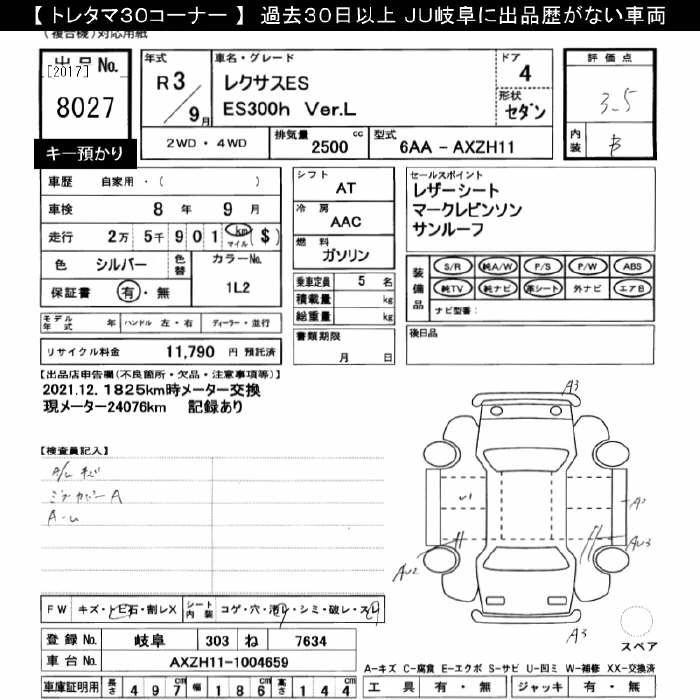 【 トレタマ30コーナー 】 過去30日以上 JU岐阜に出品歴がない車両
(複合機)対応用紙
出品No.
[2017]
8027
キー預かり
年式
R 3 / 9 月
車名・グレード
レクサスES
ES300h Ver.L
ドア
4
形状
セダン
2WD ・ 4WD
排気量 2500 cc
型式 6AA - AXZH11
評価点
3.5
内装 B
車歴 自家用・( )
車検 8 年 9 月
走行 2万 5千 9 0 1 km マイル ($)
色 シルバー 色替 カラーNo.
1L2
保証書 有・無
シフト
AT
冷房
AAC
燃料
ガソリン
乗車定員 5 名
積載量 kg
総重量 kg
セールスポイント
レザーシート
マークレビンソン
サンルーフ
装備品
S/R 純A/W P/S P/W ABS
純TV 純ナビ 革シート 外ナビ エアB
ナビ型番:
モデル年式 年 ハンドル 左・右 ディーラー・並行
書類期限
月 日
後日品
リサイクル料金 11,790 円 預託済
【出品店申告欄(不良箇所・欠品・注意事項等)】
2021.12. 1825km時メーター交換
現メーター24076km 記録あり
【検査員記入】
A/Lキズ
ミラカバーA
A-ム
A3
U1
A2
AU2
AU3
A3
スペア
FW キズ・トビ石・割レX シート内装 コゲ・穴・汚レ・シミ・破レ・スレ
登録No. 岐阜 303 ね 7634
車台No. AXZH11-1004659
車庫証明用 長さ 4 9 7 cm 幅 1 8 6 cm 高さ 1 4 4 cm
A-キズ C-腐食 E-エクボ S-サビ U-凹ミ W-補修 XX-交換済
工具 有・無 ジャッキ 有・無